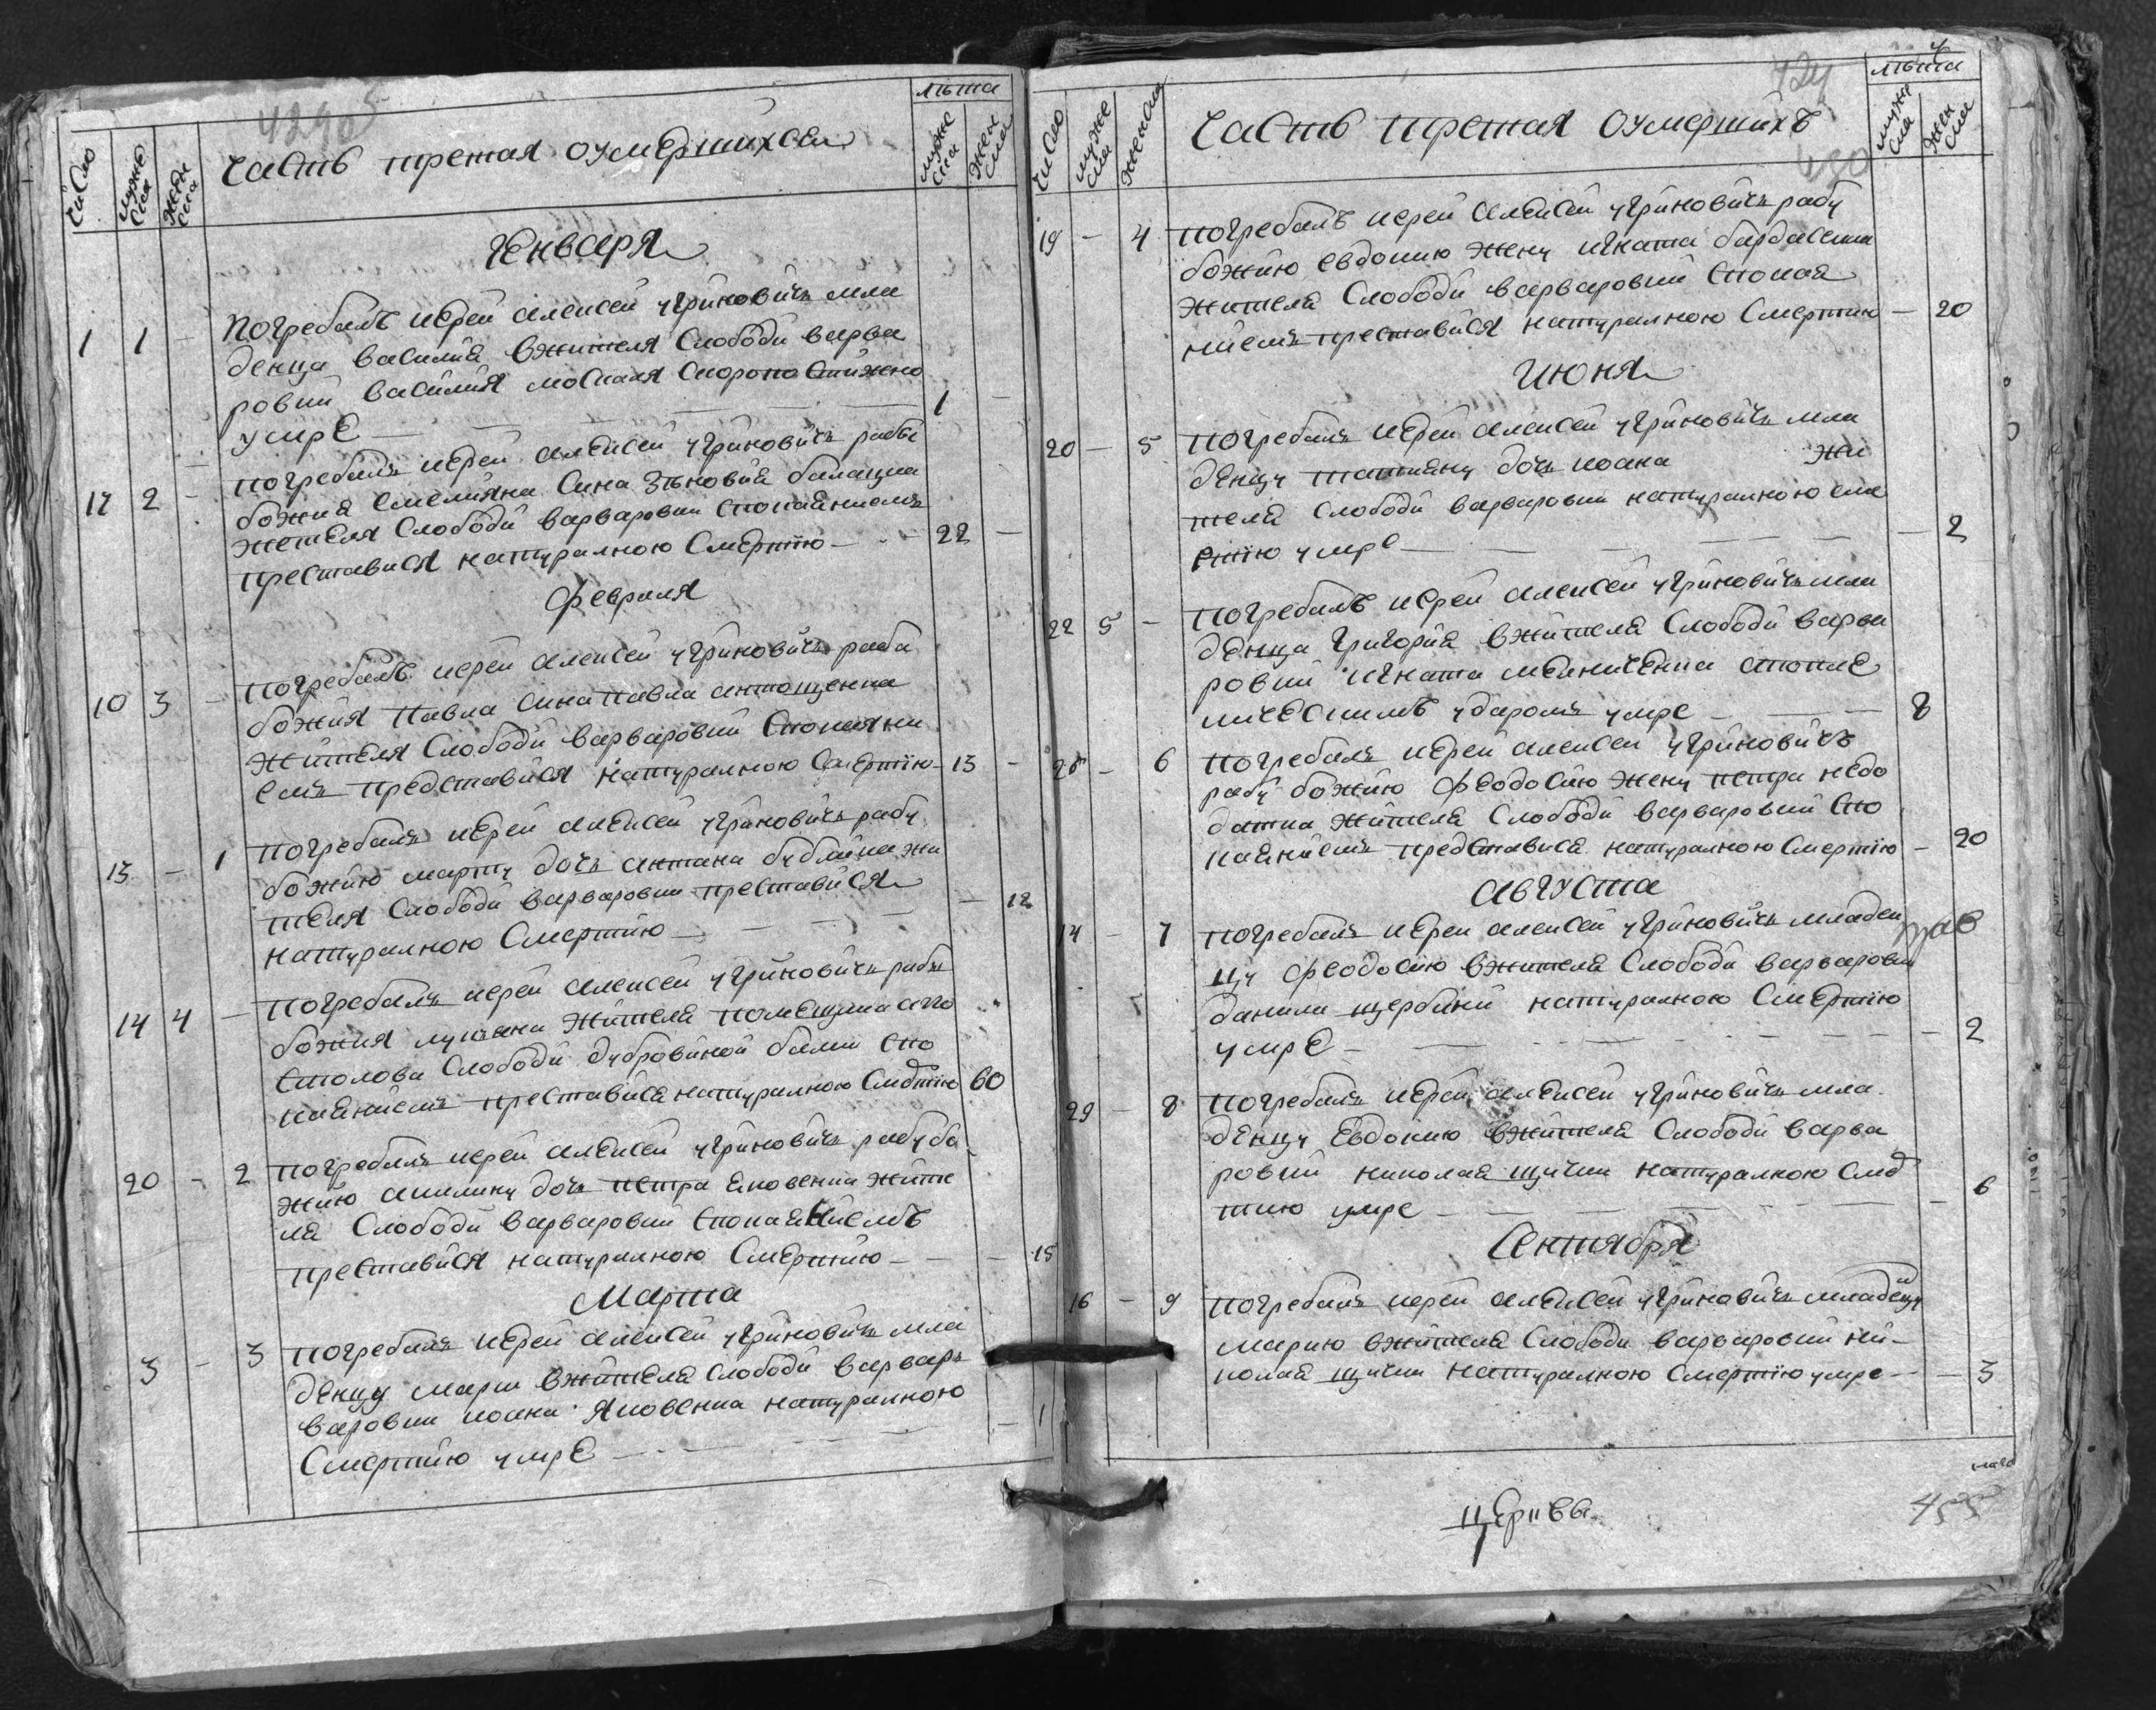 4290
Число
муже ска
женс ска
Часть третая оумершихся
лѣта
муже ска
жен ска
Генваря
1 1 - Погребалъ иерей алексей угриновичъ мла
денца василия вжителя слободи варва
ровки василия москаля скоропостижно
умре — 1 -
17 2 - погребалъ иерей алексей угриновичъ раба
божия емелияна сина зѣновия балацка
жетеля слободи варваровки спокаяниемъ
преставися натуралною смертию — 22 -
Февраля
10 3 - погребалъ иерей алексей угриновичъ раба
божия павла сина павла антощенка
жителя слободи варваровки спокаяни
емъ представися натуралною смертию 13 -
13 - 1 погребалъ иерей алексей угриновичъ рабу
божию марту дочь антана бублика жи
теля слободи варваровки преставися
натуралною смертию — - 12
14 4 - погребалъ иерей алексей угриновичъ раба
божия лукяна жителя помещика апо
столова слободи дубровиной балки спо
каяниемъ преставися натуралною смертию 60
20 - 2 погребалъ иерей алексей угриновичъ рабу бо
жию акилину дочь петра яковенка жите
ля слободи варваровки спокаяниемъ
преставися натуралною смертию — - 15
Марта
3 - 3 погребалъ иерей алексей угриновичъ мла
денцу марии вжителя слободи варварь
варовки иоана яковенка натуралною
смертию умре — - 1
424
430
Число
муже ска
женска
Часть третая оумершихъ
лѣта
муже ска
жен ска
19 - 4 погребалъ иерей алексей угриновичъ рабу
божию евдокию жену игната бардасенка
жителя слободи варваровки спокая
ниемъ преставися натуралною смертию - 20
Июня
20 - 5 погребалъ иерей алексей угриновичъ мла
денцу татияну дочь иоана жи
теля слободи варваровки натуралною сме
ртию умре — - 2
22 5 - погребалъ иерей алексей угриновичъ мла
денца григория вжителя слободи варва
ровки игната мелниченка
ударомъ умре — 8
28 - 6 погребалъ иерей алексей угриновичъ
рабу божию феодосию жену петра недо
датка жителя слободи варваровки спо
каяниемъ представися натуралною смертию - 20
Августа
14 - 7 погребалъ иерей алексей угриновичъ младен
цу феодосию вжителя слободи варваровки
данила щербини натуралною смертию
умре — - 2
29 - 8 погребалъ иерей алексей угриновичъ мла
денцу евдокию вжителя слободи варва
ровки николая щички натуралною смер
тию умре — - 6
Сентября
16 - 9 погребалъ иерей алексей угриновичъ младенцу
марию вжителя слободи варваровки ни-
колая щички натуралною смертию умре - - 3
церквы
455